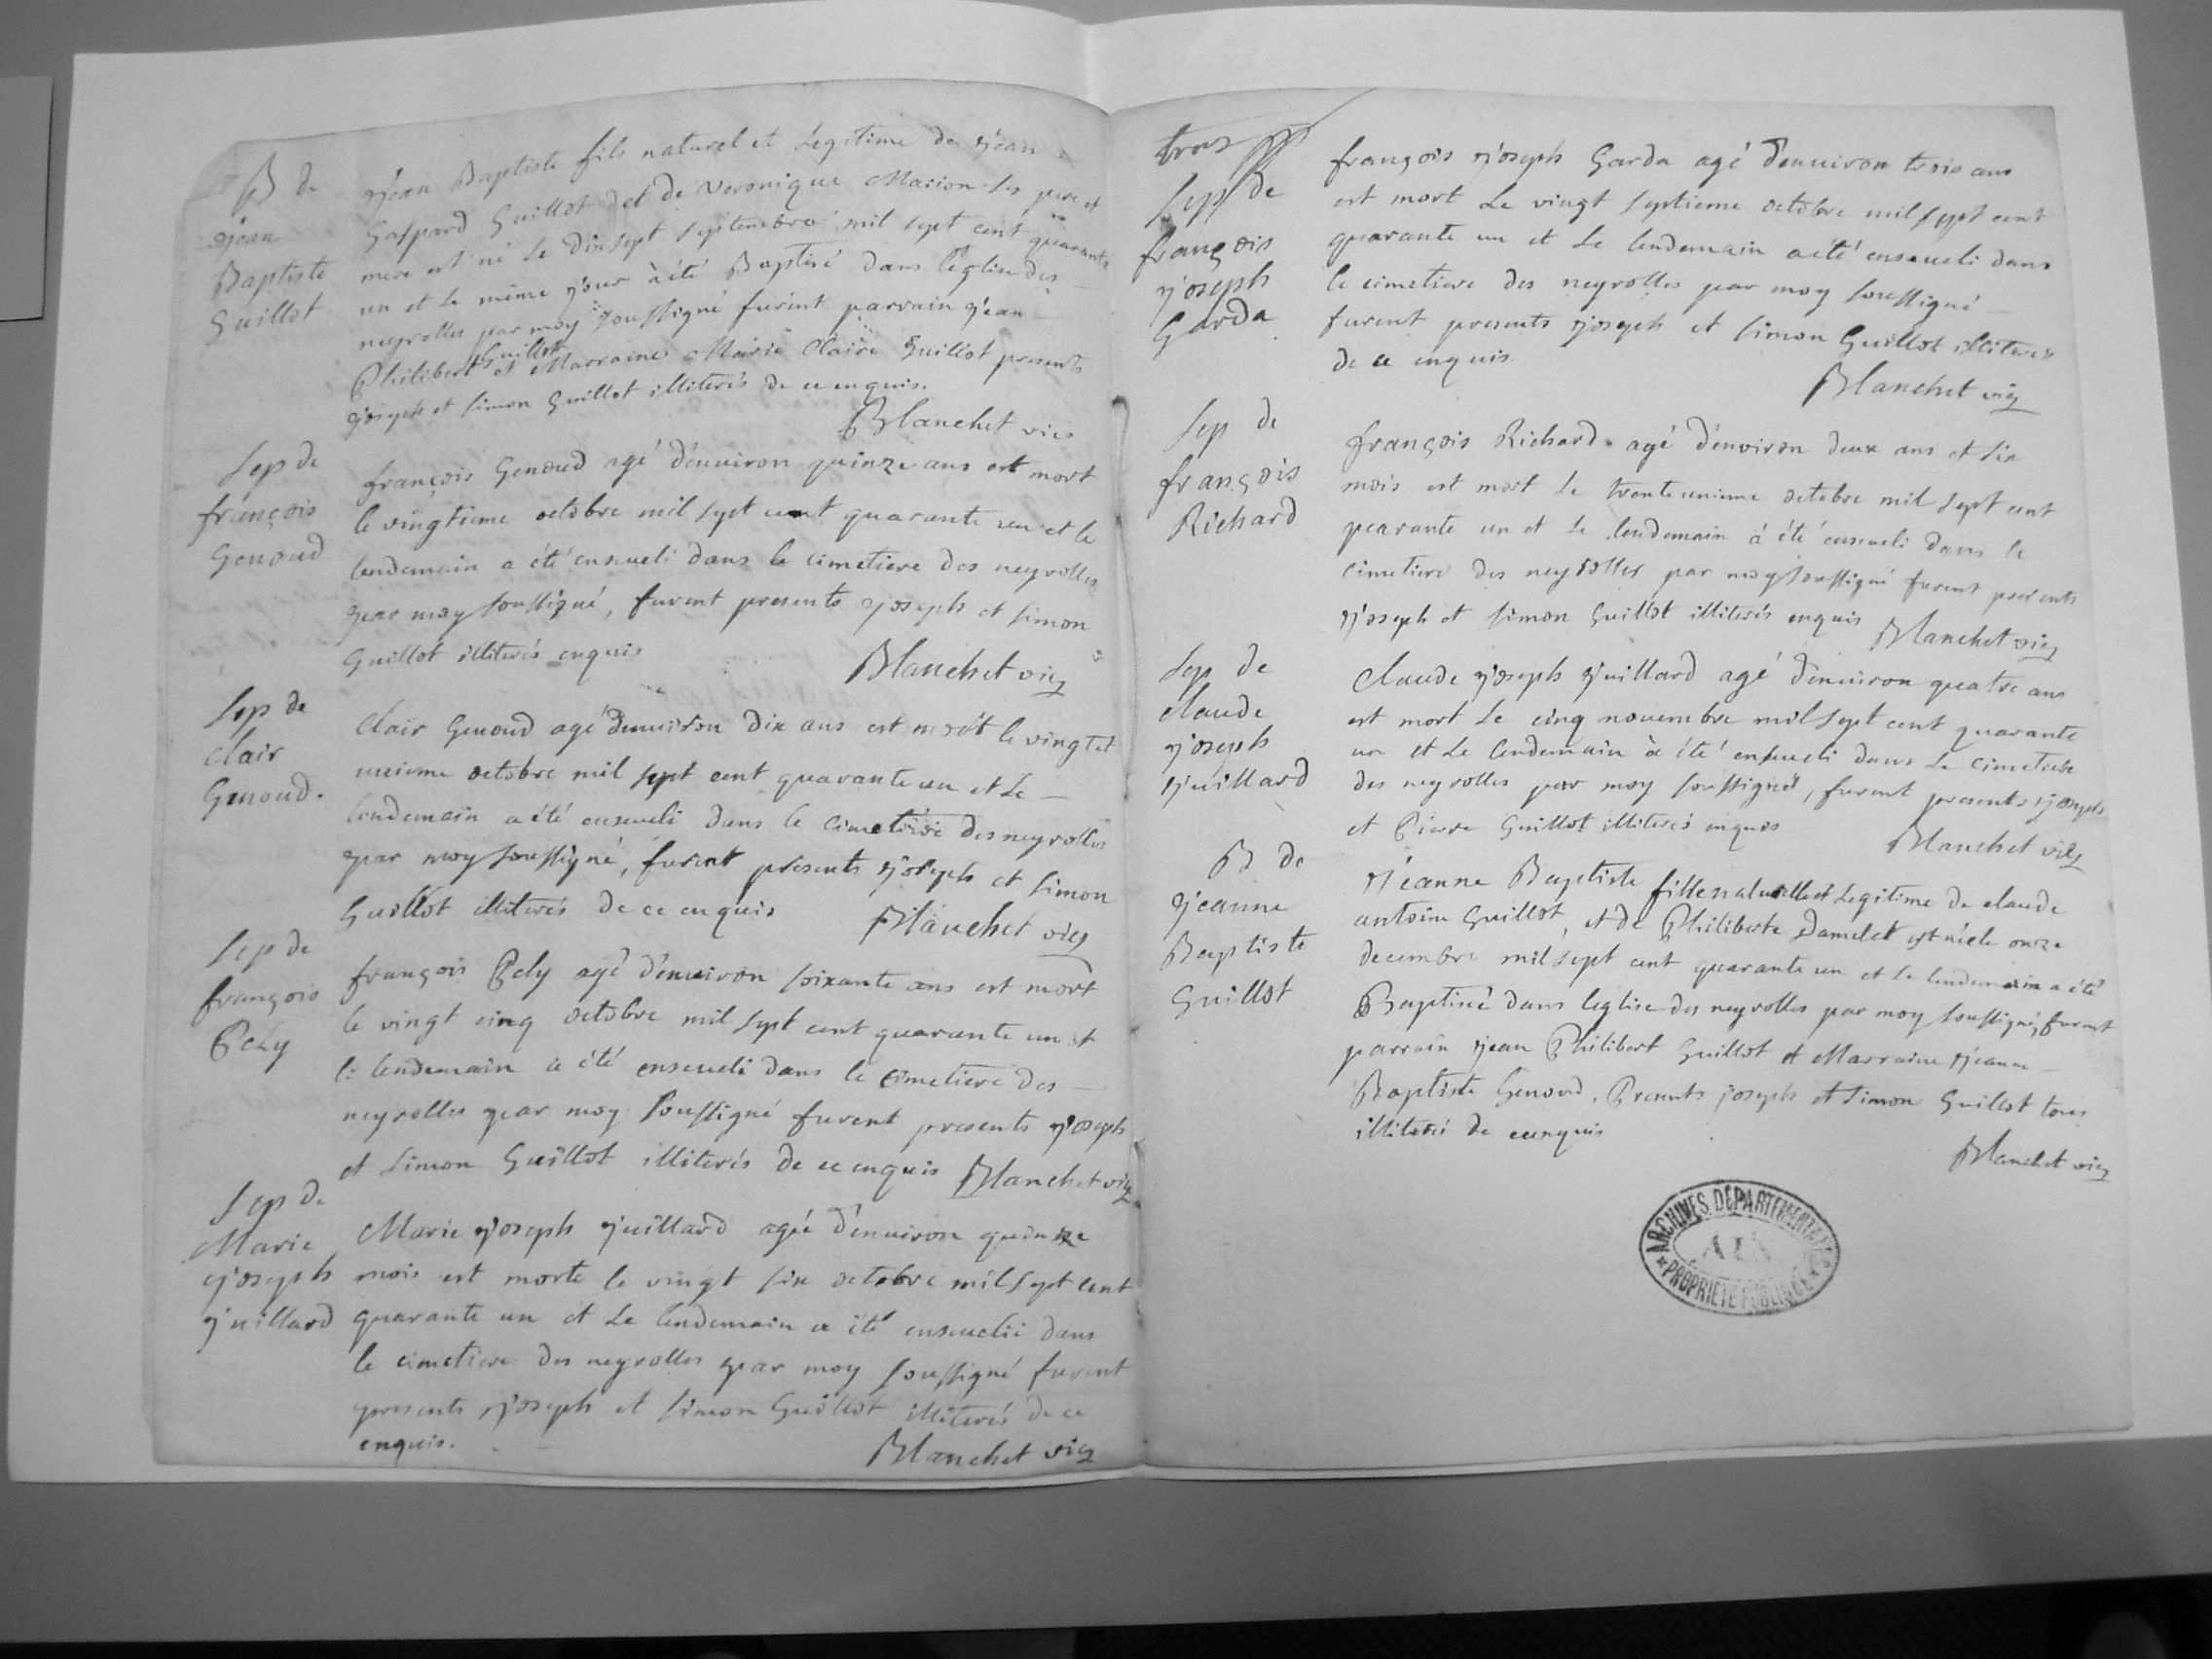 B de
jean
Baptiste
Guillot
jean Baptiste fils naturel et Legitime de jean
Gaspard Guillot et de Veronique Marion ses pere et
mere est né le dixsept septembre mil sept cent quarante
un et le même jour à été Baptisé dans l'église des
neyrolles par moy soussigné furent parrain jean
Philibert Guillot et Marraine Marie Claire Guillot presents
joseph et simon Guillot illiterés de ce enquis.
Blanchet vic
Sep de
françois
Genoud
françois Genoud agé d'enuiron quinze ans est mort
le vingtieme octobre mil sept cent quarante un et le
lendemain a été enseueli dans le cimetiere des neyrolles
par moy soussigné, furent presents joseph et simon
Guillot illiterés enquis
Blanchet vic
Sep de
clair
Genoud.
Clair Genoud agé d'enuiron dix ans est mort le vingt et
unieme octobre mil sept cent quarante un et Le
lendemain a été enseueli dans le cimetiere des neyrolles
par moy soussigné, furent presents joseph et simon
Guillot illiterés de ce enquis
Blanchet vic
Sep de
françois
Pely
françois Pely agé d'enuiron soixante ans est mort
le vingt cinq octobre mil sept cent quarante un et
le lendemain a été enseueli dans le cimetiere des
neyrolles par moy soussigné furent presents joseph
et Simon Guillot illiterés de ce enquis
Blanchet vic
Sep de
Marie
joseph
juillard
Marie joseph juillard agée d'enuiron quinze
mois est morte le vingt six octobre mil sept cent
quarante un et Le lendemain a été enseuelii dans
le cimetiere des neyrolles par moy soussigné furent
presents joseph et simon Guillot illiterés de ce
enquis.
Blanchet vic
Sep de
françois
joseph
Garda
françois joseph Garda agé d'enuiron trois ans
est mort Le vingt septieme octobre mil sept cent
quarante un et Le lendemain a été enseueli dans
le cimetiere des neyrolles par moy soussigné
furent presents joseph et simon Guillot illiterés
de ce enquis
Blanchet vic
Sep de
françois
Richard
françois Richard agé d'environ deux ans et six
mois est mort Le trente unieme octobre mil sept cent
quarante un et Le lendemain à été enseueli dans le
cimetiere des neyrolles par moy soussigné furent presents
joseph et simon Guillot illiterés enquis
Blanchet vic
Sep de
claude
joseph
juillard
Claude joseph juillard agé d'enuiron quatre ans
est mort Le cinq nouembre mil sept cent quarante
un et Le lendemain à été enseueli dans Le cimetiere
des neyrolles par moy soussigné, furent presents joseph
et Pierre Guillot illiterés enquis
Blanchet vic
B de
jeanne
Baptiste
Guillot
jeanne Baptiste fille naturelle et Legitime de claude
antoine Guillot, et de Philiberte Damelet est née le onze
decembre mil sept cent quarante un et Le lendemain a été
Baptisée dans l'eglise des neyrolles par moy soussigné, furent
parrain jean Philibert Guillot et Marraine jeanne
Baptiste Genoud, Presents joseph et Simon Guillot tous
illiterés de ce enquis
Blanchet vic
ARCHIVES DÉPARTEMENTALES
AIN
PROPRIÉTÉ PUBLIQUE